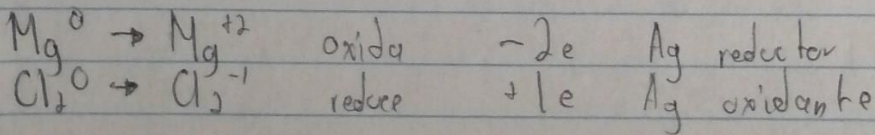 Mg⁰ → Mg⁺² oxida -2e Ag reductor
Cl₂⁰ → Cl₂⁻¹ reduce +1e Ag oxidante